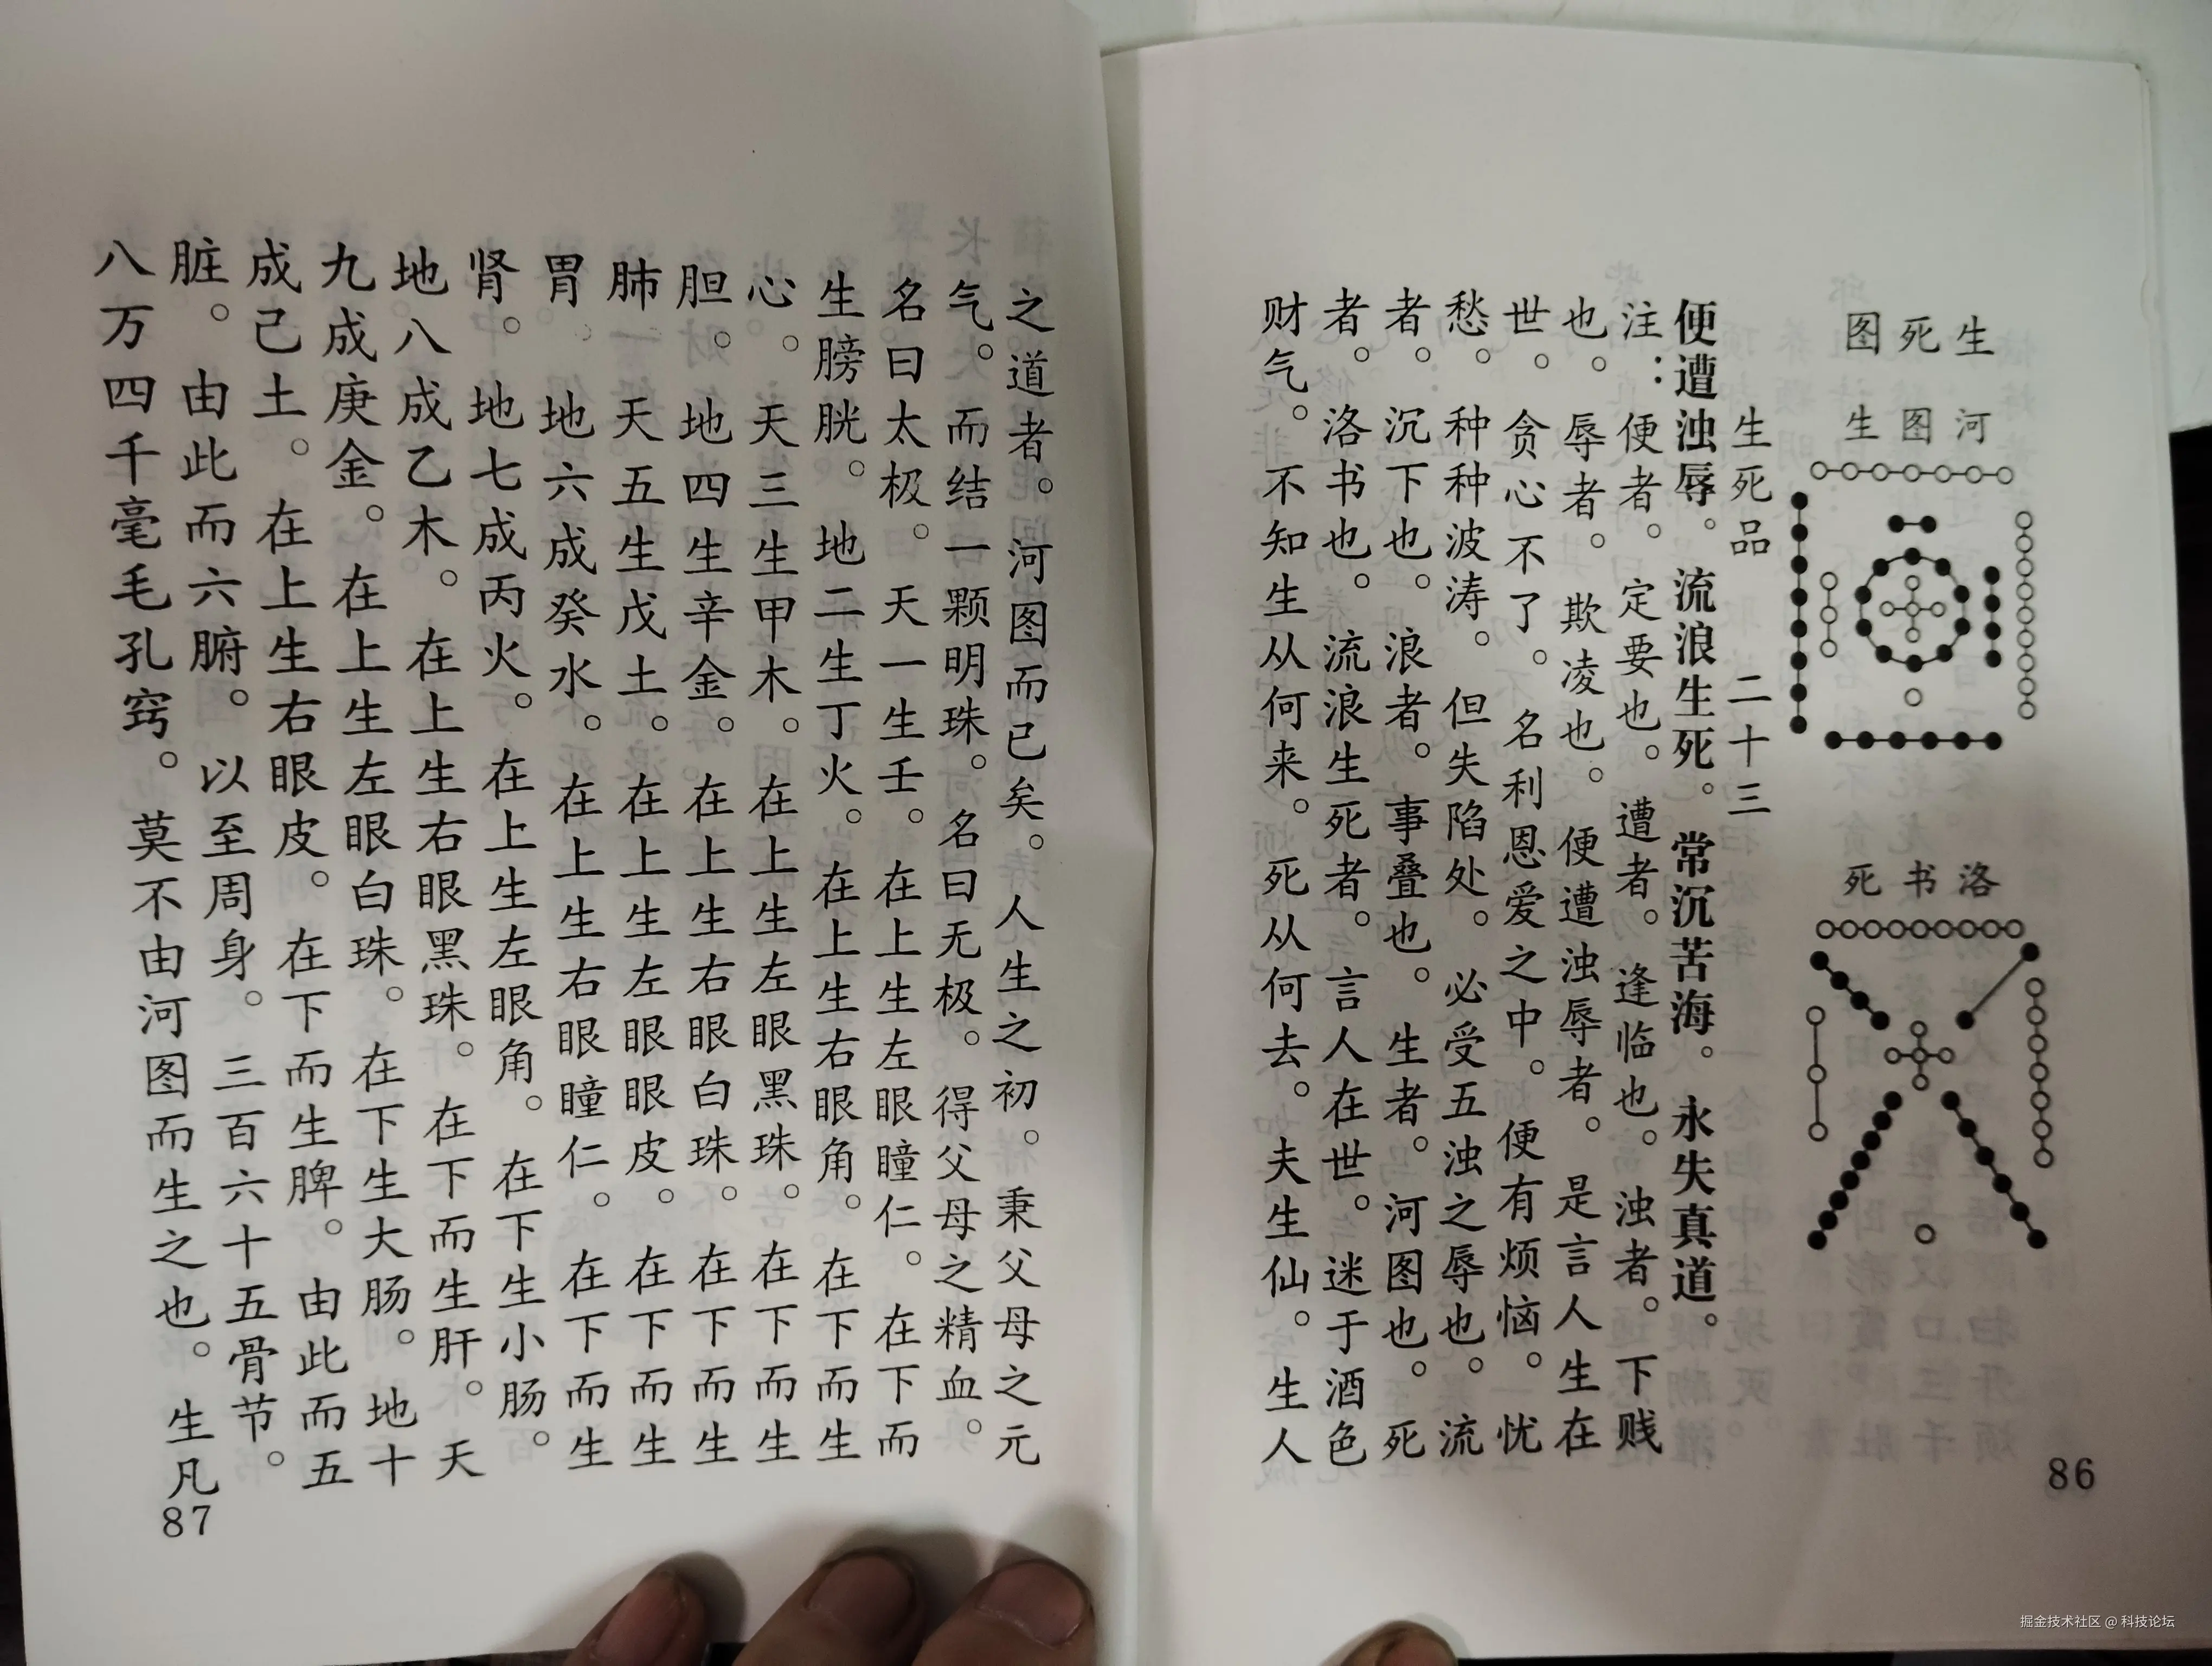 生死图
河图生
洛书死
生死品 二十三
便遭浊辱。流浪生死。常沉苦海。永失真道。
注：便者。定要也。遭者。逢临也。浊者。下贱
也。辱者。欺凌也。便遭浊辱者。是言人生在
世。贪心不了。名利恩爱之中。便有烦恼。忧
愁。种种波涛。但失陷处。必受五浊之辱也。流
者。沉下也。浪者。事叠也。生者。河图也。死
者。洛书也。流浪生死者。言人在世。迷于酒色
财气。不知生从何来。死从何去。夫生仙。生人
86
之道者。河图而已矣。人生之初。秉父母之元
气。而结一颗明珠。名曰无极。得父母之精血。
名曰太极。天一生壬。在上生左眼瞳仁。在下而
生膀胱。地二生丁火。在上生右眼角。在下而生
心。天三生甲木。在上生左眼黑珠。在下而生
胆。地四生辛金。在上生右眼白珠。在下而生
肺。天五生戊土。在上生左眼眼皮。在下而生
胃。地六成癸水。在上生右眼瞳仁。在下而生
肾。地七成丙火。在上生左眼角。在下生小肠。
地八成乙木。在上生右眼黑珠。在下而生肝。天
九成庚金。在上生左眼白珠。在下生大肠。地十
成己土。在上生右眼皮。在下而生脾。由此而五
脏。由此而六腑。以至周身。三百六十五骨节。
八万四千毫毛孔窍。莫不由河图而生之也。生凡
87
掘金技术社区 @ 科技论坛